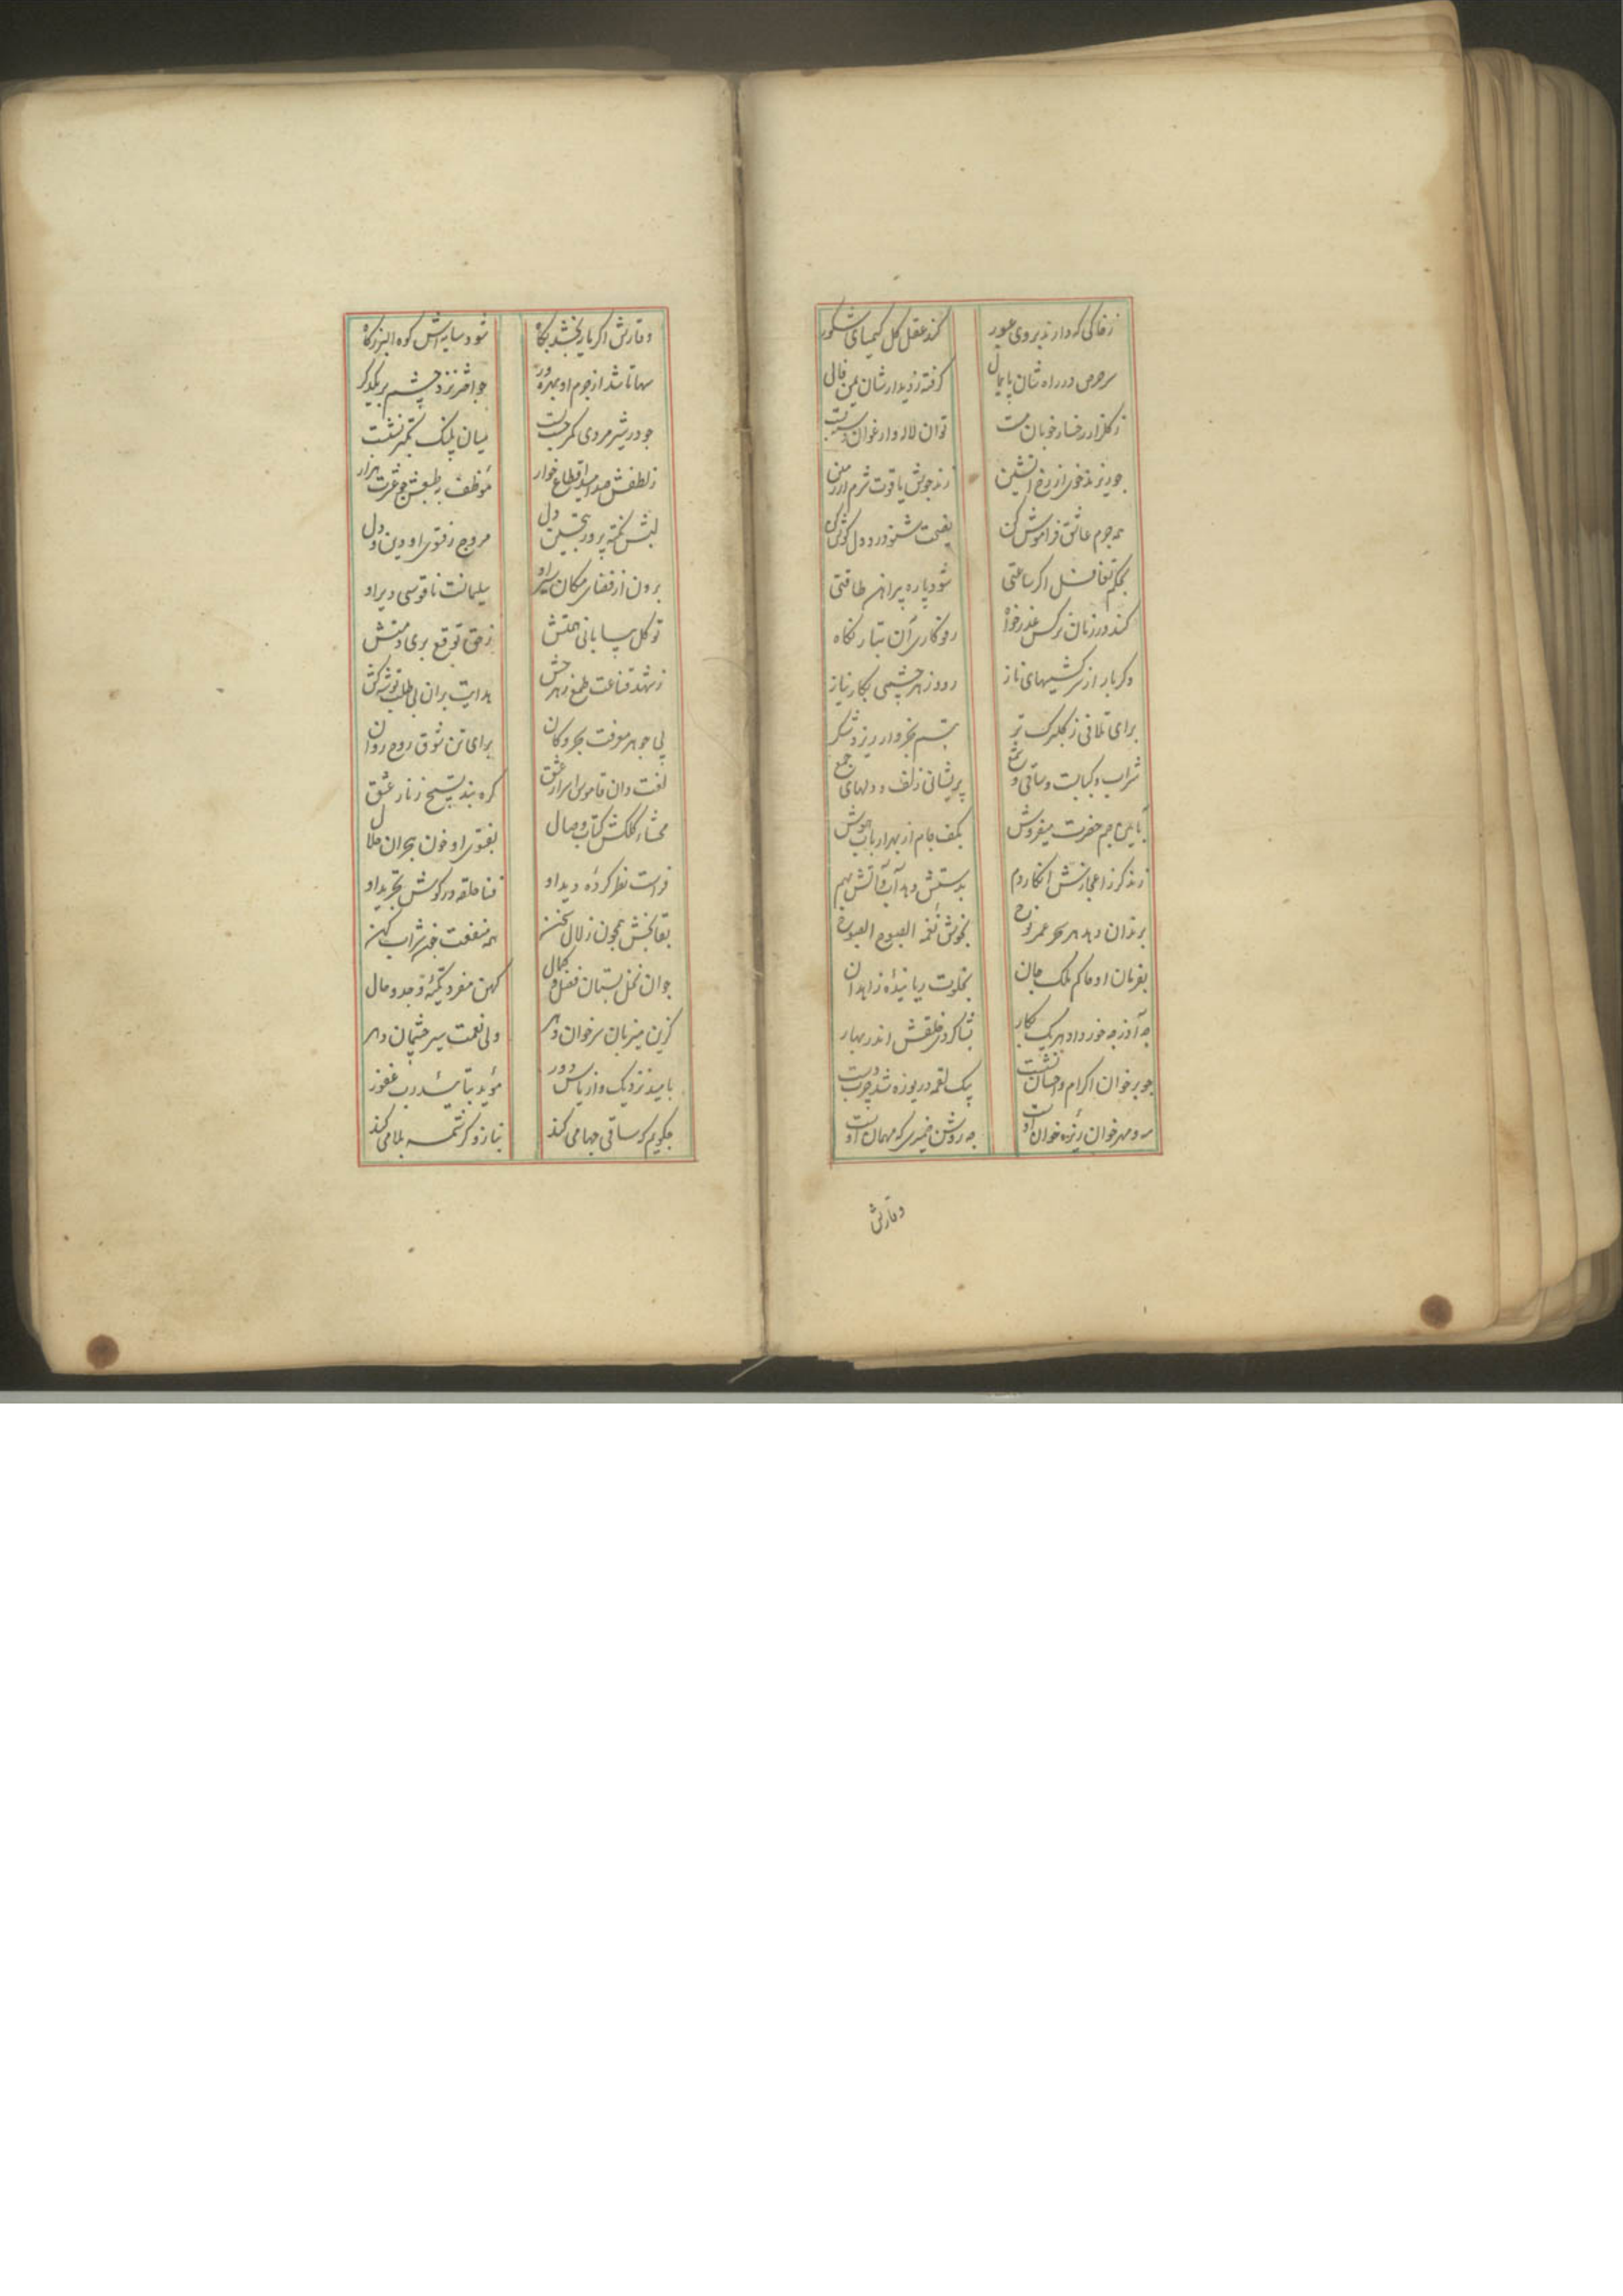 ز خاکی که دارند بروی عبور کند عقل کل کیمیای شکور
سر حرص در راه شان پایمال گرفته ز دیدارشان یمن فال
ز گلزار رخسار خوبان مست توان لاله و ارغوان دسته بست
چو ریزند خوی از رخ آتشین زند جوش یاقوت شرم از زمین
همه جرم عاشق فراموش کن نصیحت شنو درد دل گوش کن
بحکم تغافل اگر ساعتی شود پاره پیراهن طاقتی
کند در زمان نرگس عذرخواه رفوکاری آن بتار نکاه
وکر بار از سرکشیهای ناز رود زهر چشمی بکار نیاز
برای تلافی ز کلبرک تر تبسم بخروار ریزد شکر
شراب و کبابست و ساقی و شمع پریشانی زلف و دلهای جمع
بآیین جم حضرت میفروش بکف جام از بهر ارباب هوش
زند کر ز اعجازش انکار دم بدستش دهد آب و آتش بهم
برندان دهد هر سحر عمر نوح بخوش نغمه الصبوح الصبوح
بفرمان او حاکم ملک جان بخلوت ریاننده زاهدان
چه آذر چه خرداد هر یک بکار ثناکر ز خلقش اندر بهار
چو بر خوان اکرام و احسان نشست بیک لقمه دریوزه شد چرب دست
مه و مهر خوان ریزه خوان اوست چه روشن ضمیری که مهمان اوست
وقارش
وقارش اکر بار بخشد بکاه شود سایه‌اش کوه البرز کاه
سها تا شد از جرم او بهره ور جواهر نزد چشم بر یکدکر
چو در شیرمردی کمر چست بست میان پلنک تکبر نشست
ز لطفش صد امید اقطاع خوار موظف به طبعش چو عزت هزار
لبش نکته پرور بتحسین دل مروج ز فتوی او دین و دل
برون از فضای مکان سیر او سلیمانست ناقوسی دیر او
توکل بیابانی همتش زحق توقع بری ذمتش
ز شهد قناعت طمع زهر چش هدایت بران بی طلب توشه کش
پی جوهر معرفت بحر و کان برای تن شوق روح روان
لغت دان قاموس اسرار عشق کره بند تسبیح زنار عشق
محشاء کلکش کتاب وصال بفتوی او خون هجران حلال
فراست نظر کرده دید او فنا حلقه در کوش تجرید او
بقابخش همچون زلال سخن همه منفعت چون شراب کهن
جوان نخل بستان فضل و کمال کهن مفرد تکیه وجد و حال
کزین میزبان سر خوان دهر ولی نعمت سیرچشمان دهر
بامید نزدیک و از یاس دور موید بتأیید رب غفور
چکویم که ساقی چها می کند بناز و کرشمه بلا می کند